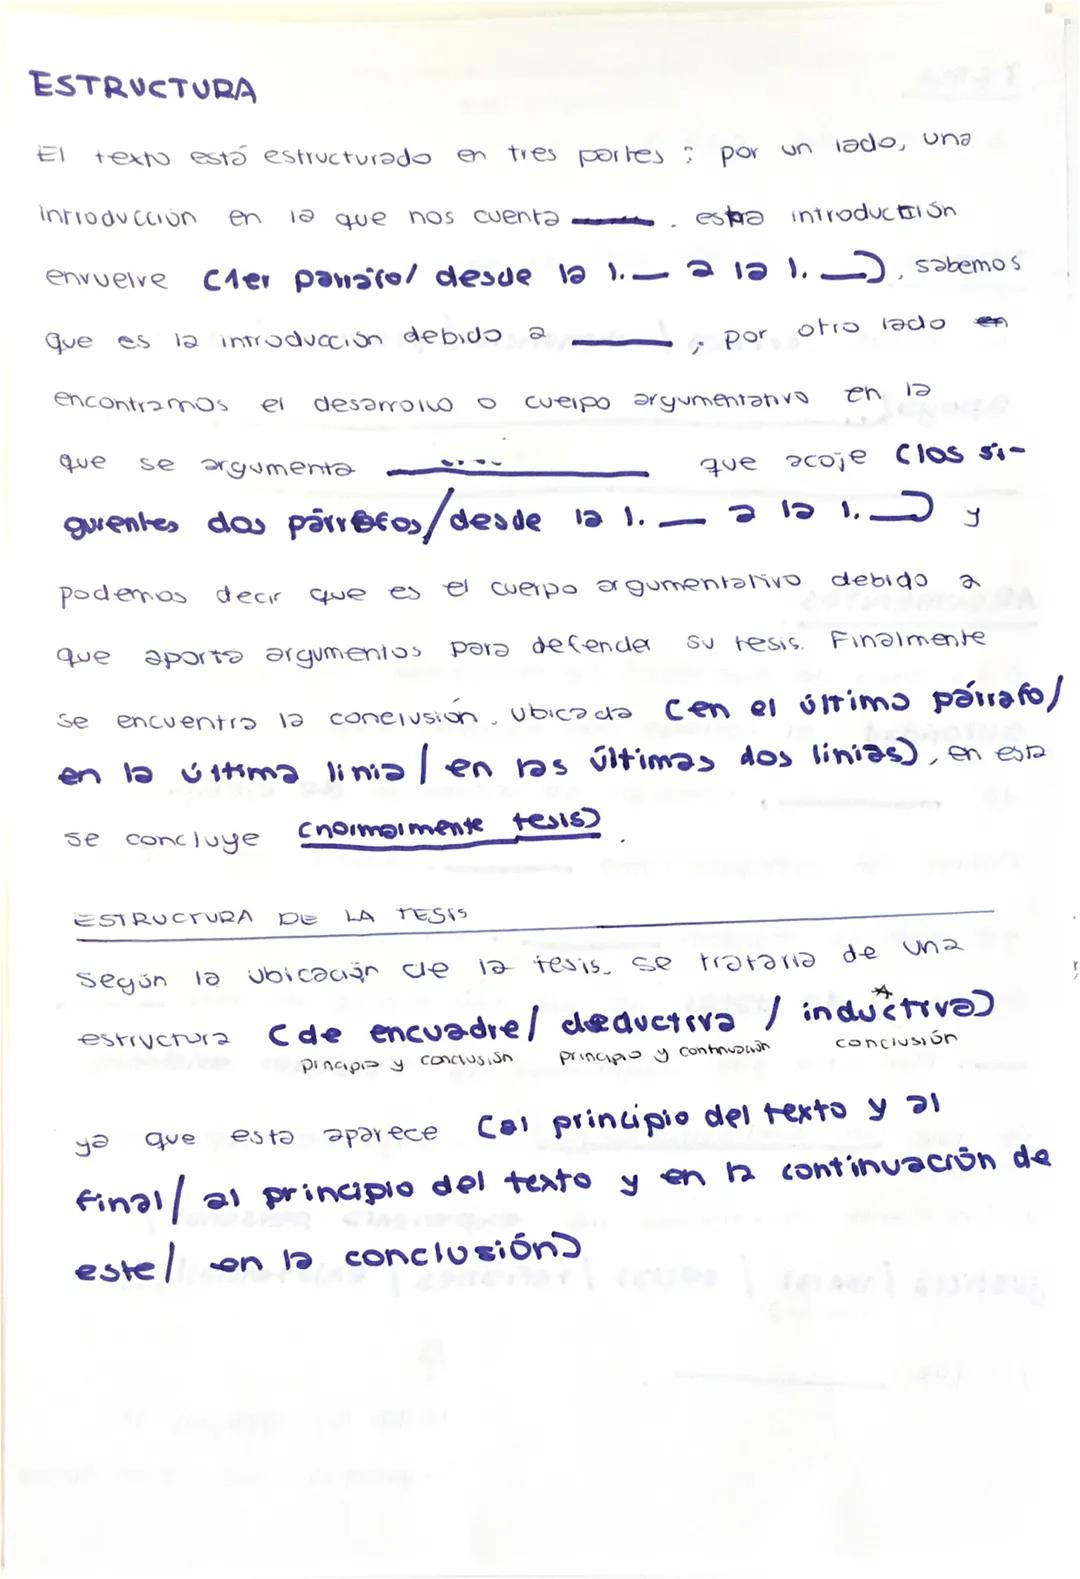 ESTRUCTURA
El texto está estructurado en tres partes; por un lado, una
introducción en la que nos cuenta ____. esta introducción
envuelve (1er párrafo/ desde la l.__ a la l.__), sabemos
que es la introducción debido a ____; por otro lado en
encontramos el desarrollo o cuerpo argumentativo en la
que se argumenta ____....____ que acoje (los si-
guientes dos párrafos/desde la l.__ a la l.__) y
podemos decir que es el cuerpo argumentativo debido a
que aporta argumentos para defender su tesis. Finalmente
se encuentra la conclusión, ubicada (en el último párrafo/
en la última linia/en las últimas dos linias), en esta
se concluye (normalmente tesis).
ESTRUCTURA DE LA TESIS
según la ubicación de la tesis, se trataría de una
estructura (de encuadre/ deductiva / inductiva)
principio y conclusión principio y continuación conclusión
ya que esta aparece (al principio del texto y al
final/ al principio del texto y en la continuación de
este/ en la conclusión)